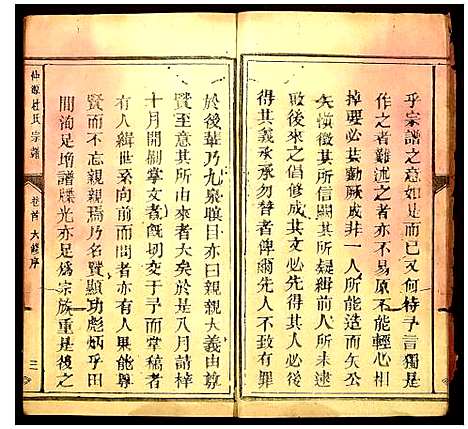 乎宗譜之意如是而已又何待予言獨是
作之者難述之者亦不易原不能輕心相
掉要必其勤厥成非一人所能造而矢公
矢慎徵其所信闕其所疑緝前人所未逮
啟後來之倡修成其文必先得其人文必
得其義承承勿替者俾爾先人不致有罪
於後輩乃九泉暝目亦曰親親大義由尊
賢至意其所由來者大矣於是八月請梓
十月開劂掌文者慨切交于予而掌稿者
有人緝世系向前問者亦有人果能尊
賢而不忘親親焉乃名賢顯功彪炳乎田
間洵足增譜牒光亦足為宗族重是後之
仙源杜氏宗譜
卷首 大 序
三